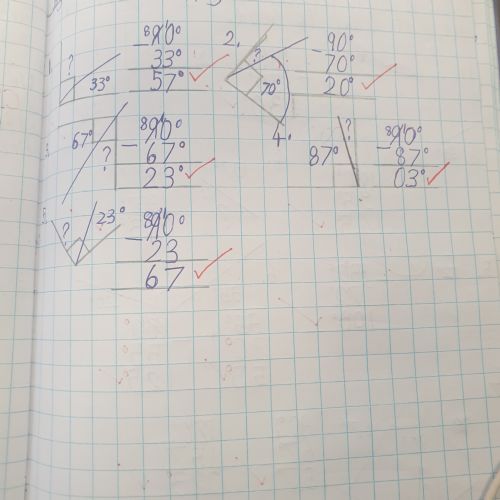 1. ? 33°
⁸9¹0°
- 33°
57°
2. ? 70°
90°
- 70°
20°
3. 67° ?
⁸9¹0°
- 67°
23°
4. 87° ?
⁸9¹0°
- 87°
03°
5. ? 23°
⁸9¹0°
- 23
67